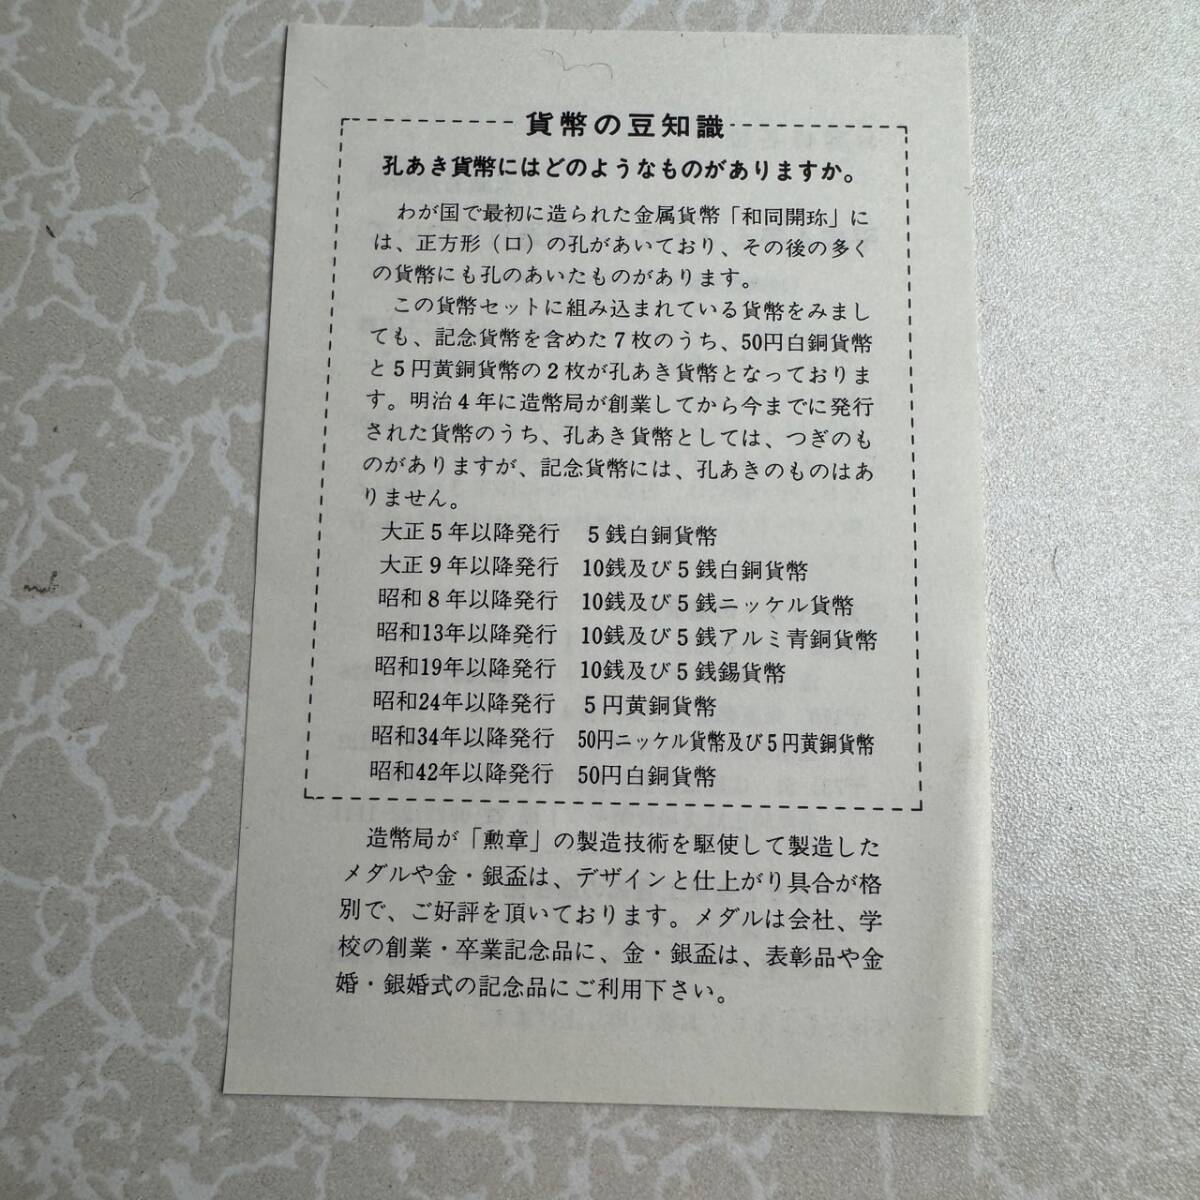 貨幣の豆知識
孔あき貨幣にはどのようなものがありますか。
わが国で最初に造られた金属貨幣「和同開珎」に
は、正方形（口）の孔があいており、その後の多く
の貨幣にも孔のあいたものがあります。
この貨幣セットに組み込まれている貨幣をみまし
ても、記念貨幣を含めた7枚のうち、50円白銅貨幣
と5円黄銅貨幣の2枚が孔あき貨幣となっておりま
す。明治4年に造幣局が創業してから今までに発行
された貨幣のうち、孔あき貨幣としては、つぎのも
のがありますが、記念貨幣には、孔あきのものはあ
りません。
大正5年以降発行　5銭白銅貨幣
大正9年以降発行　10銭及び5銭白銅貨幣
昭和8年以降発行　10銭及び5銭ニッケル貨幣
昭和13年以降発行　10銭及び5銭アルミ青銅貨幣
昭和19年以降発行　10銭及び5銭錫貨幣
昭和24年以降発行　5円黄銅貨幣
昭和34年以降発行　50円ニッケル貨幣及び5円黄銅貨幣
昭和42年以降発行　50円白銅貨幣
造幣局が「勲章」の製造技術を駆使して製造した
メダルや金・銀盃は、デザインと仕上がり具合が格
別で、ご好評を頂いております。メダルは会社、学
校の創業・卒業記念品に、金・銀盃は、表彰品や金
婚・銀婚式の記念品にご利用下さい。